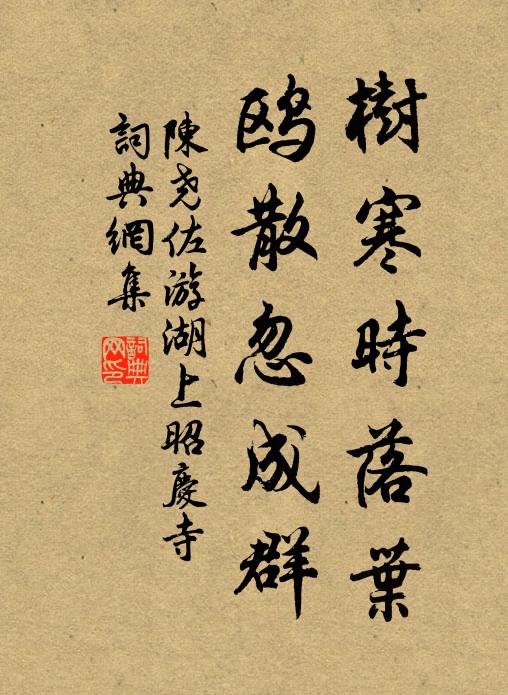 樹寒時落葉
鸥散忽成群
陳尧佐游湖上昭慶寺
詞典網集
詞典
网印